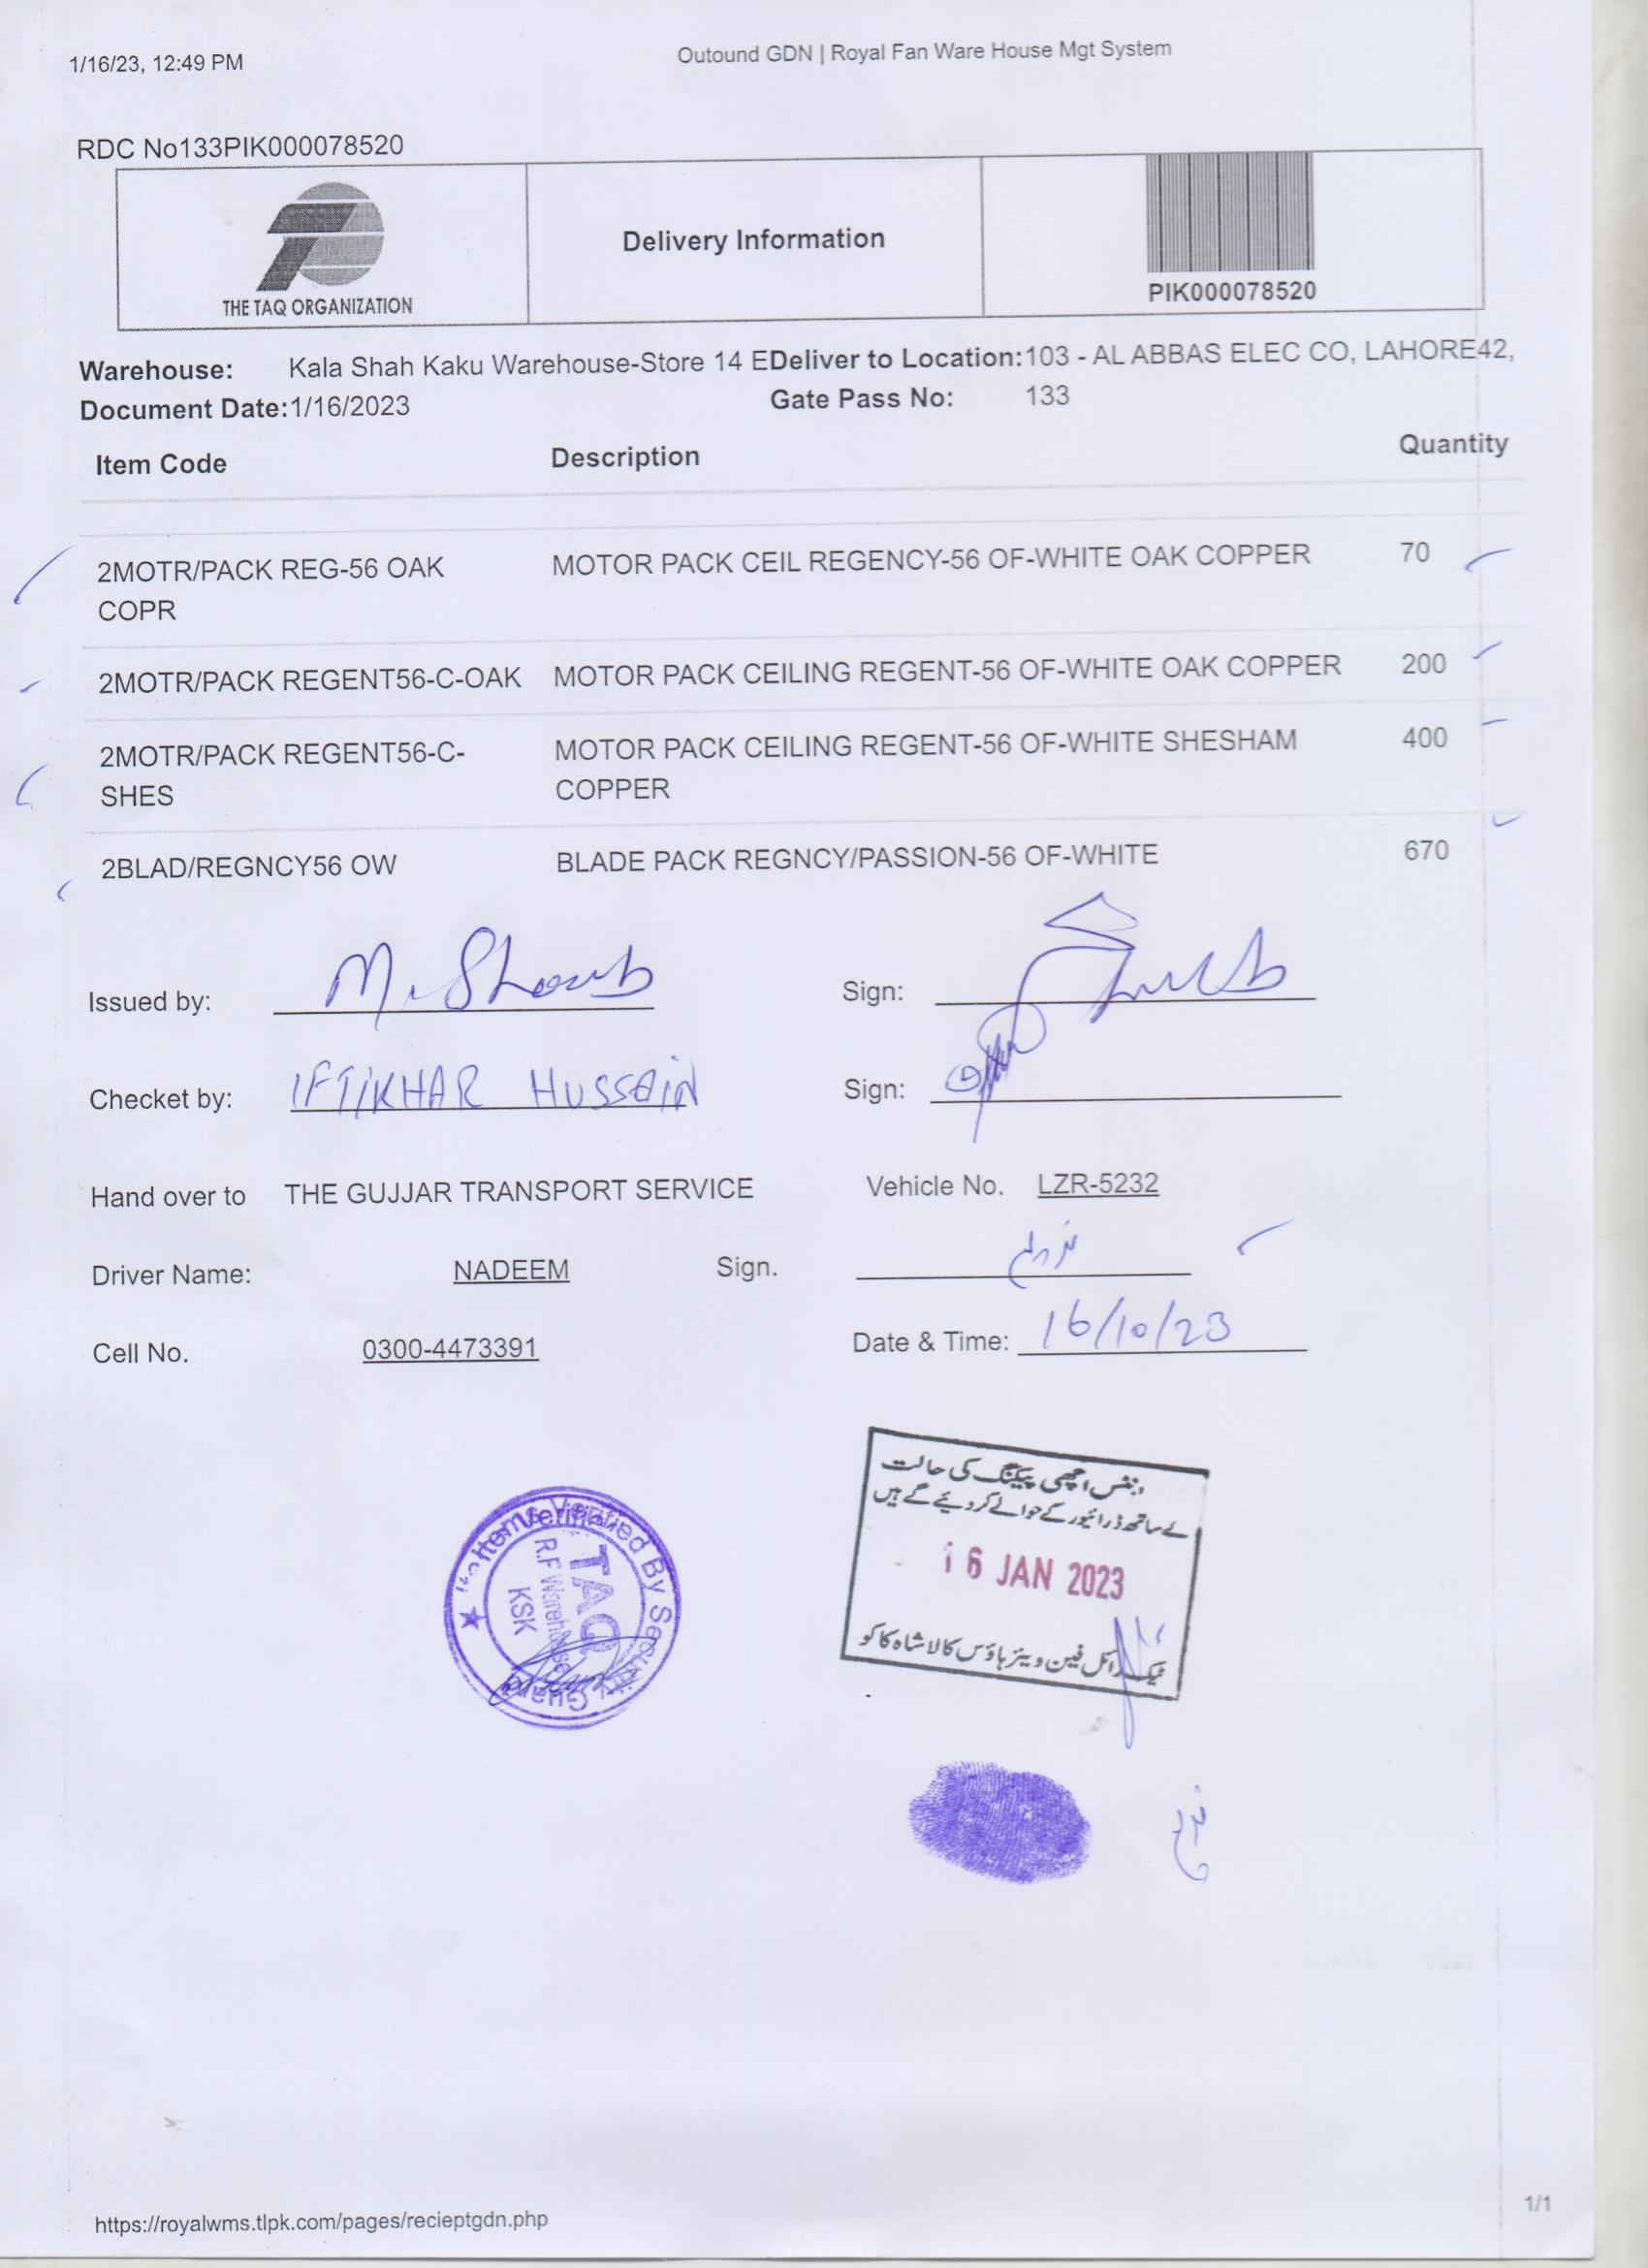 1/16/23, 12:49 PM
Outound GDN | Royal Fan Ware House Mgt System
RDC No133PIK000078520
THE TAQ ORGANIZATION
Delivery Information
PIK000078520
Warehouse: Kala Shah Kaku Warehouse-Store 14 EDeliver to Location:103 - AL ABBAS ELEC CO, LAHORE42,
Document Date:1/16/2023 Gate Pass No: 133
Item Code Description Quantity
2MOTR/PACK REG-56 OAK MOTOR PACK CEIL REGENCY-56 OF-WHITE OAK COPPER 70
COPR
2MOTR/PACK REGENT56-C-OAK MOTOR PACK CEILING REGENT-56 OF-WHITE OAK COPPER 200
2MOTR/PACK REGENT56-C- MOTOR PACK CEILING REGENT-56 OF-WHITE SHESHAM 400
SHES COPPER
2BLAD/REGNCY56 OW BLADE PACK REGNCY/PASSION-56 OF-WHITE 670
Issued by: M. Shoaib Sign:
Checket by: IFTIKHAR HUSSAIN Sign:
Hand over to THE GUJJAR TRANSPORT SERVICE Vehicle No. LZR-5232
Driver Name: NADEEM Sign. ندیم
Cell No. 0300-4473391 Date & Time: 16/10/23
Items Verified By Security Guard
TAQ
R.F Warehouse
KSK
اچھی پیکنگ کی حالت
کے ساتھ ڈرائیور کے حوالے کر دیئے گئے ہیں
16 JAN 2023
ٹیک رائل فین ویئر ہاؤس کالا شاہ کاکو
ندیم
https://royalwms.tlpk.com/pages/recieptgdn.php
1/1